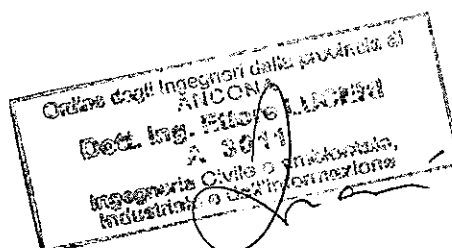 Ordine degli Ingegneri della provincia di
ANCONA
Dott. Ing. Ettore
A 3611
Ingegneria Civile e ambientale,
Industriale e dell'informazione